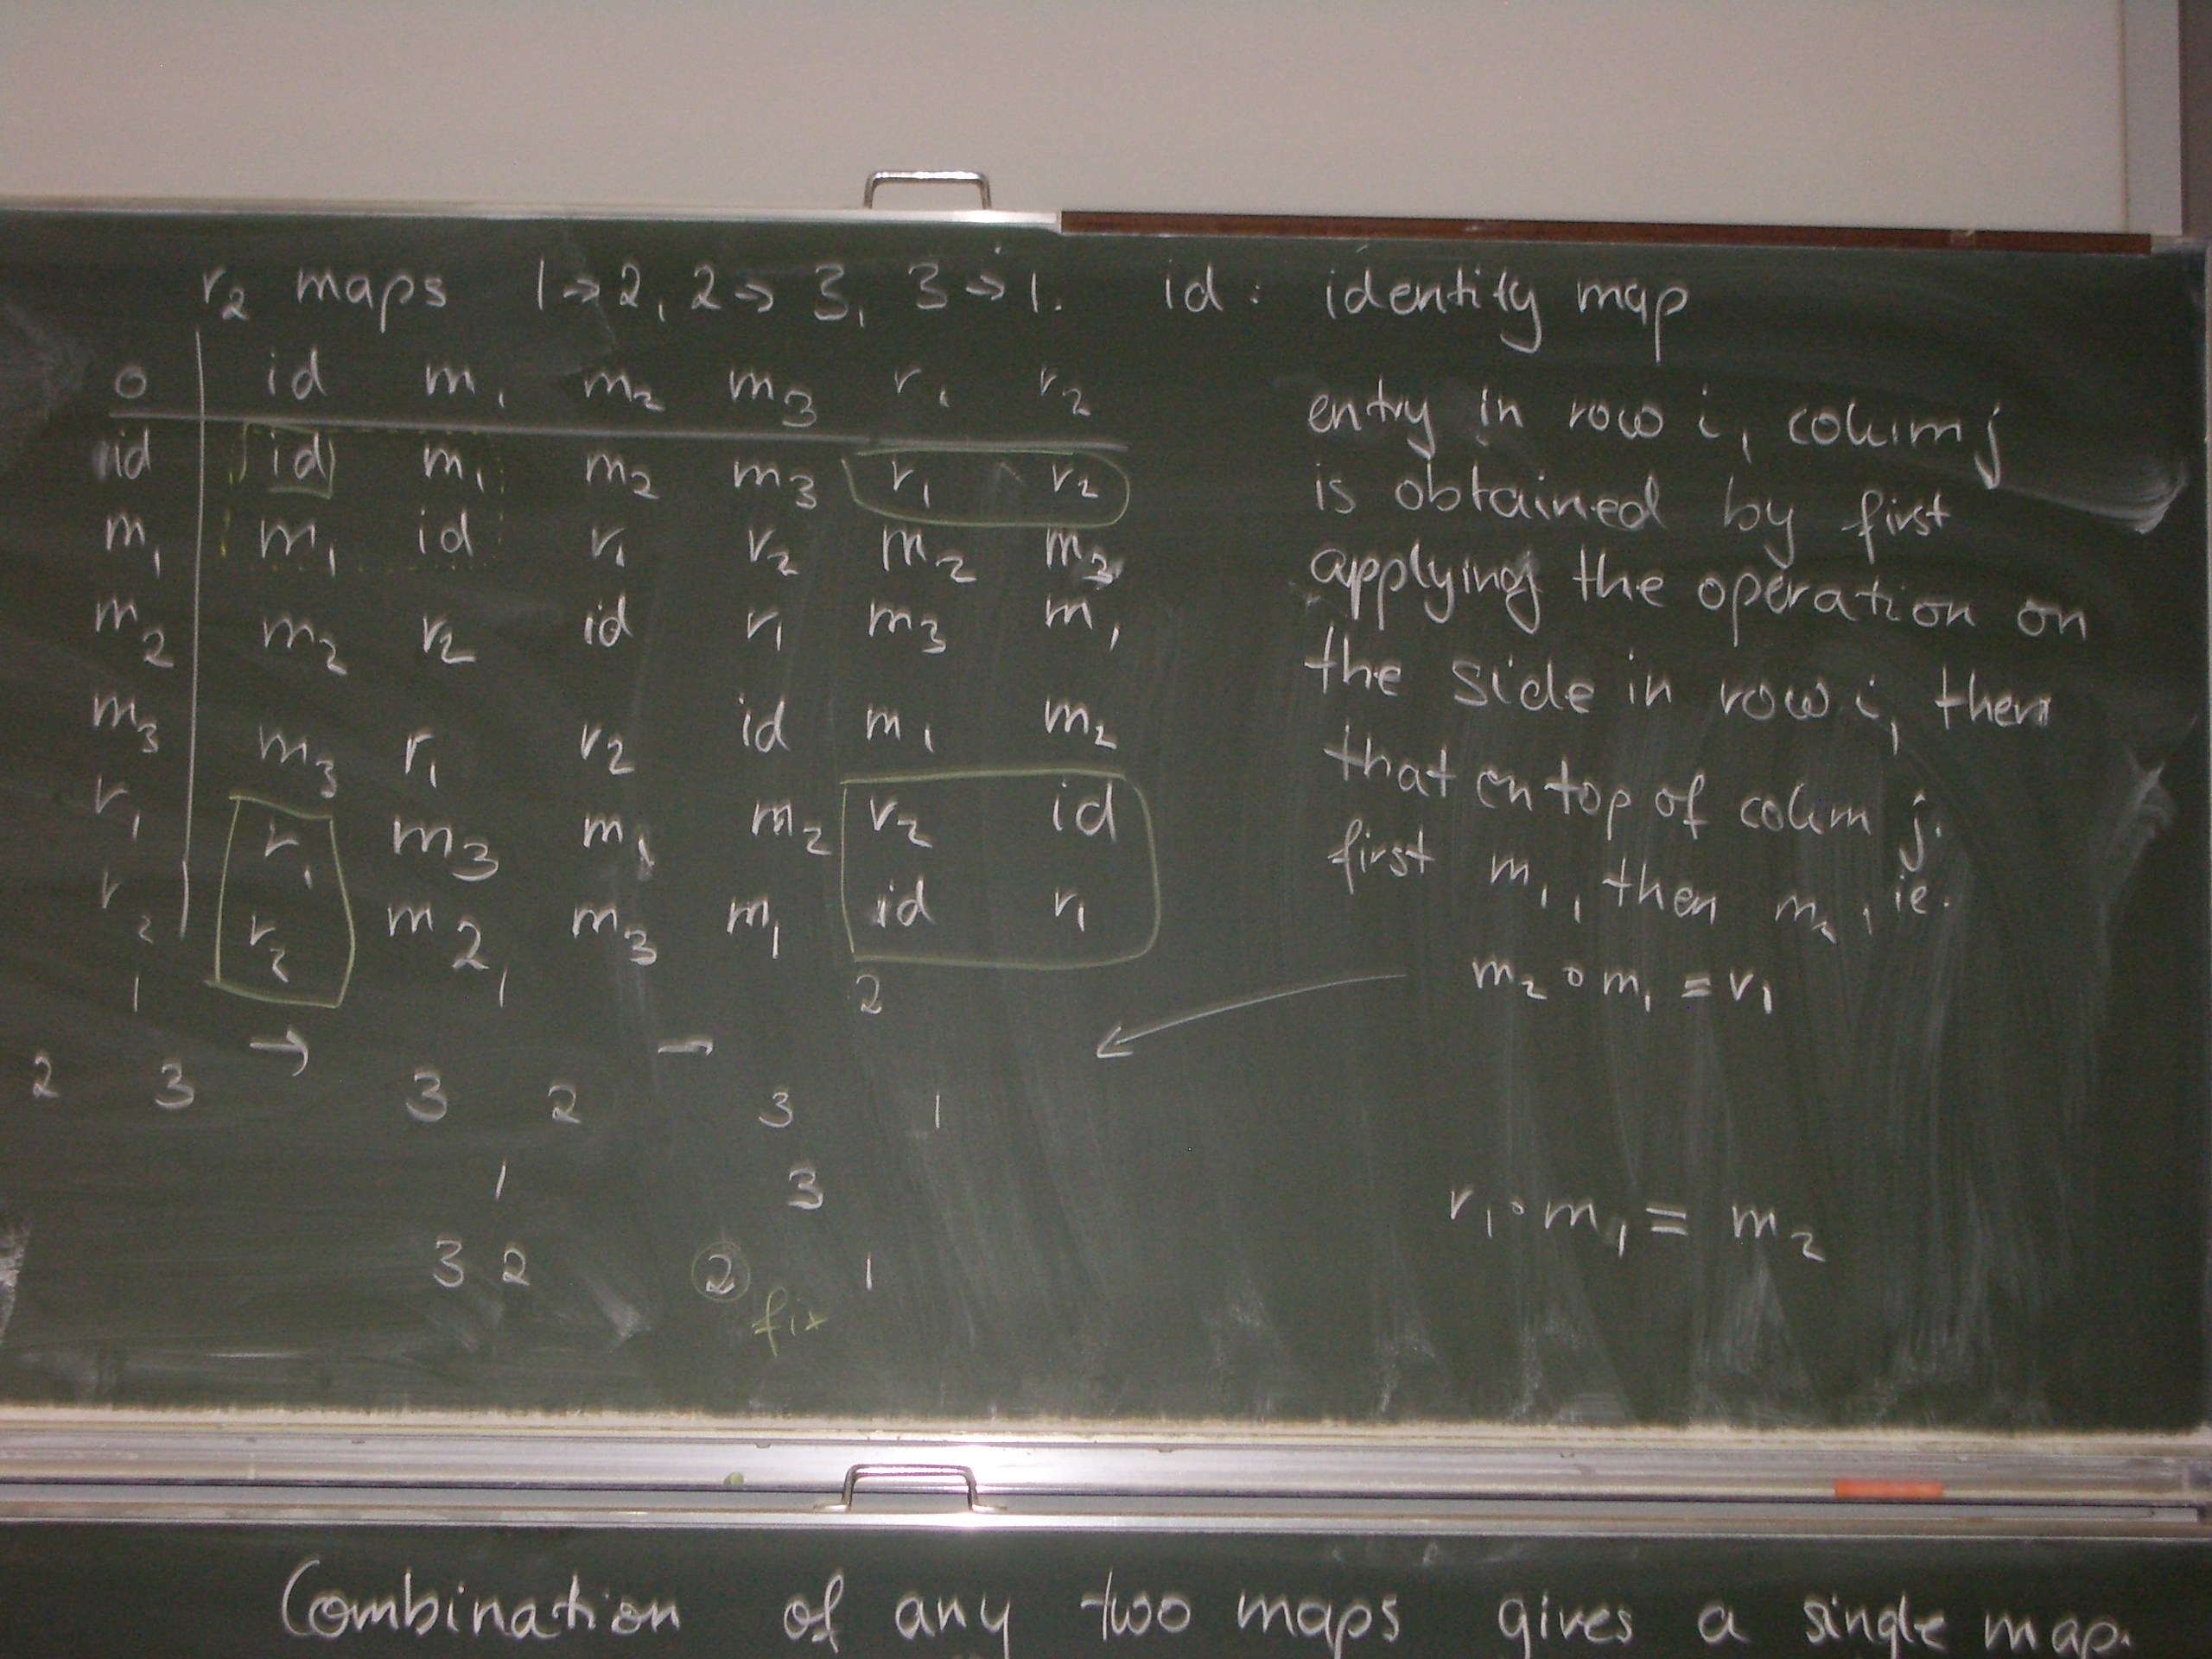 r₂ maps 1→2, 2→3, 3→1. id: identity map
o id m₁ m₂ m₃ r₁ r₂
id id m₁ m₂ m₃ r₁ r₂
m₁ m₁ id r₁ r₂ m₂ m₃
m₂ m₂ r₂ id r₁ m₃ m₁
m₃ m₃ r₁ r₂ id m₁ m₂
r₁ r₁ m₃ m₁ m₂ r₂ id
r₂ r₂ m₂ m₃ m₁ id r₁
entry in row i, colum j
is obtained by first
applying the operation on
the side in row i, then
that on top of colum j.
first m₁, then m₂, ie.
m₂ ∘ m₁ = r₁
1 1 2
→ →
2 3 3 2 3 1
1 3
3 2 2 1
fix
r₁ ∘ m₁ = m₂
Combination of any two maps gives a single map.